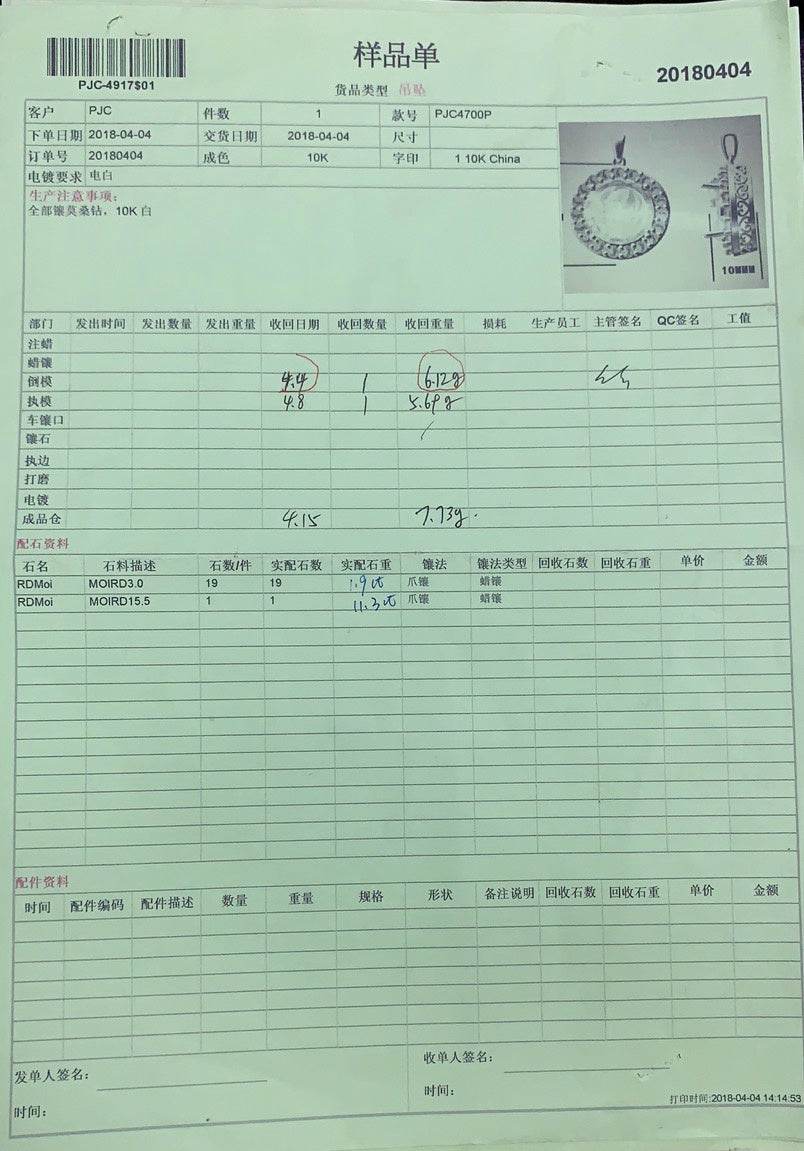 样品单
PJC-4917$01
货品类型 吊坠
20180404
客户 PJC 件数 1 款号 PJC4700P
下单日期 2018-04-04 交货日期 2018-04-04 尺寸
订单号 20180404 成色 10K 字印 1 10K China
电镀要求 电白
生产注意事项:
全部镶莫桑钻，10K 白
10MMM
部门 发出时间 发出数量 发出重量 收回日期 收回数量 收回重量 损耗 生产员工 主管签名 QC签名 工值
注蜡
蜡镶
倒模 4.4 1 6.12g
执模 4.8 1 5.69g
车镶口
镶石
执边
打磨
电镀
成品仓 4.15 7.73g.
配石资料
石名 石料描述 石数/件 实配石数 实配石重 镶法 镶法类型 回收石数 回收石重 单价 金额
RDMoi MOIRD3.0 19 19 1.9ct 爪镶 蜡镶
RDMoi MOIRD15.5 1 1 11.3ct 爪镶 蜡镶
配件资料
时间 配件编码 配件描述 数量 重量 规格 形状 备注说明 回收石数 回收石重 单价 金额
发单人签名: 收单人签名:
时间: 时间:
打印时间:2018-04-04 14:14:53